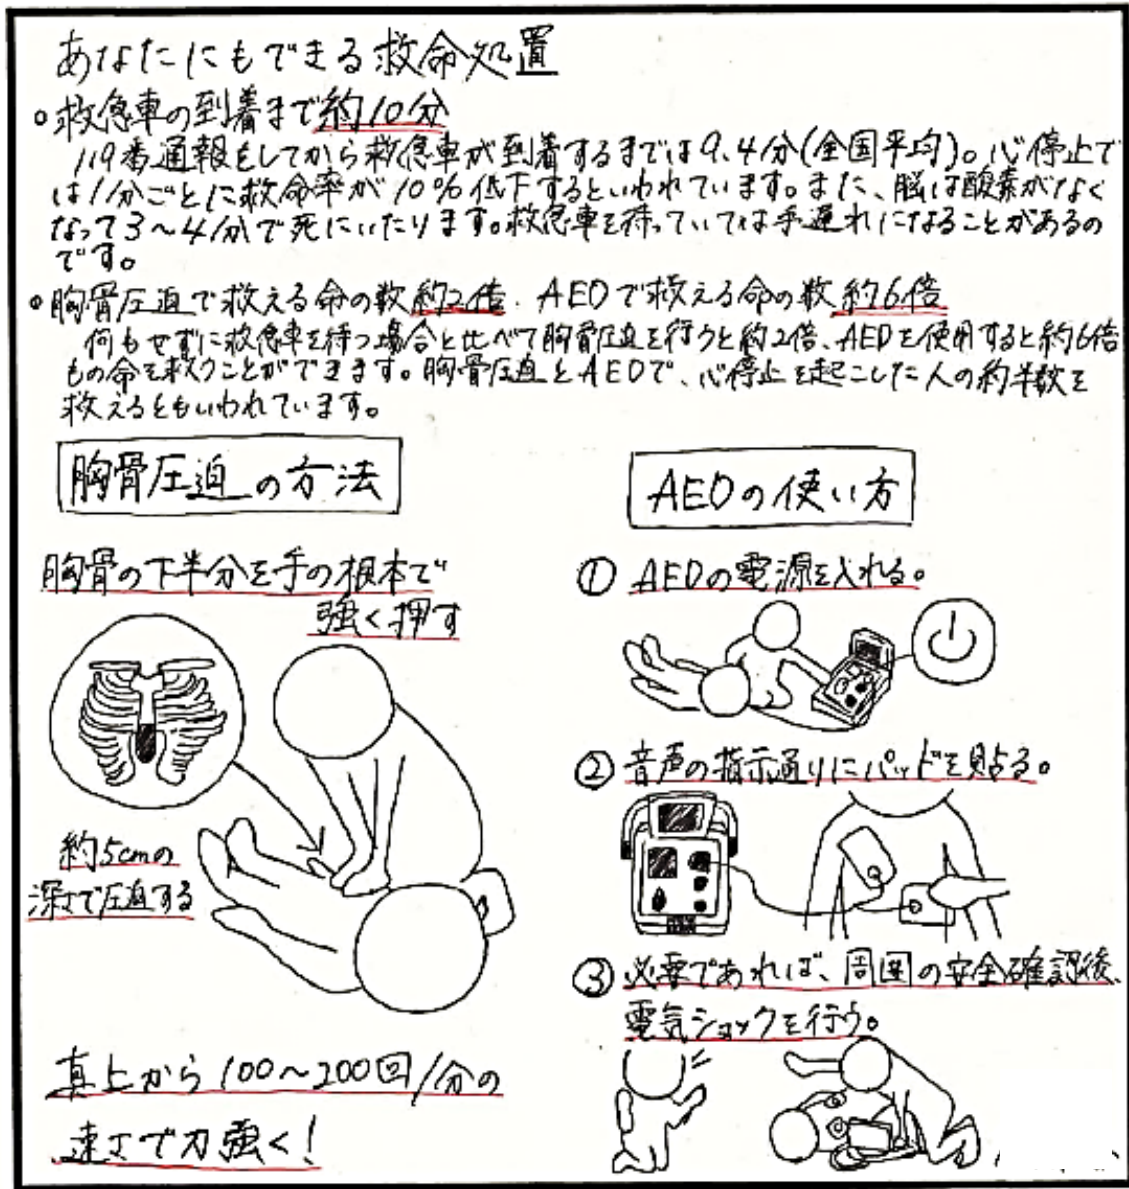 あなたにもできる救命処置
○救急車の到着まで約10分
119番通報をしてから救急車が到着するまでは9.4分(全国平均)。心停止で
は1分ごとに救命率が10%低下するといわれています。また、脳は酸素がなく
なって3~4分で死にいたります。救急車を待っていては手遅れになることがあるの
です。
○胸骨圧迫で救える命の数約2倍、AEDで救える命の数約6倍
何もせずに救急車を待つ場合と比べて胸骨圧迫を行うと約2倍、AEDを使用すると約6倍
もの命を救うことができます。胸骨圧迫とAEDで、心停止を起こした人の約半数を
救えるともいわれています。
胸骨圧迫の方法
胸骨の下半分を手の根本で
強く押す
約5cmの
深さで圧迫する
真上から100~200回/分の
速さで力強く!
AEDの使い方
① AEDの電源を入れる。
② 音声の指示通りにパッドを貼る。
③ 必要であれば、周囲の安全確認後、
電気ショックを行う。